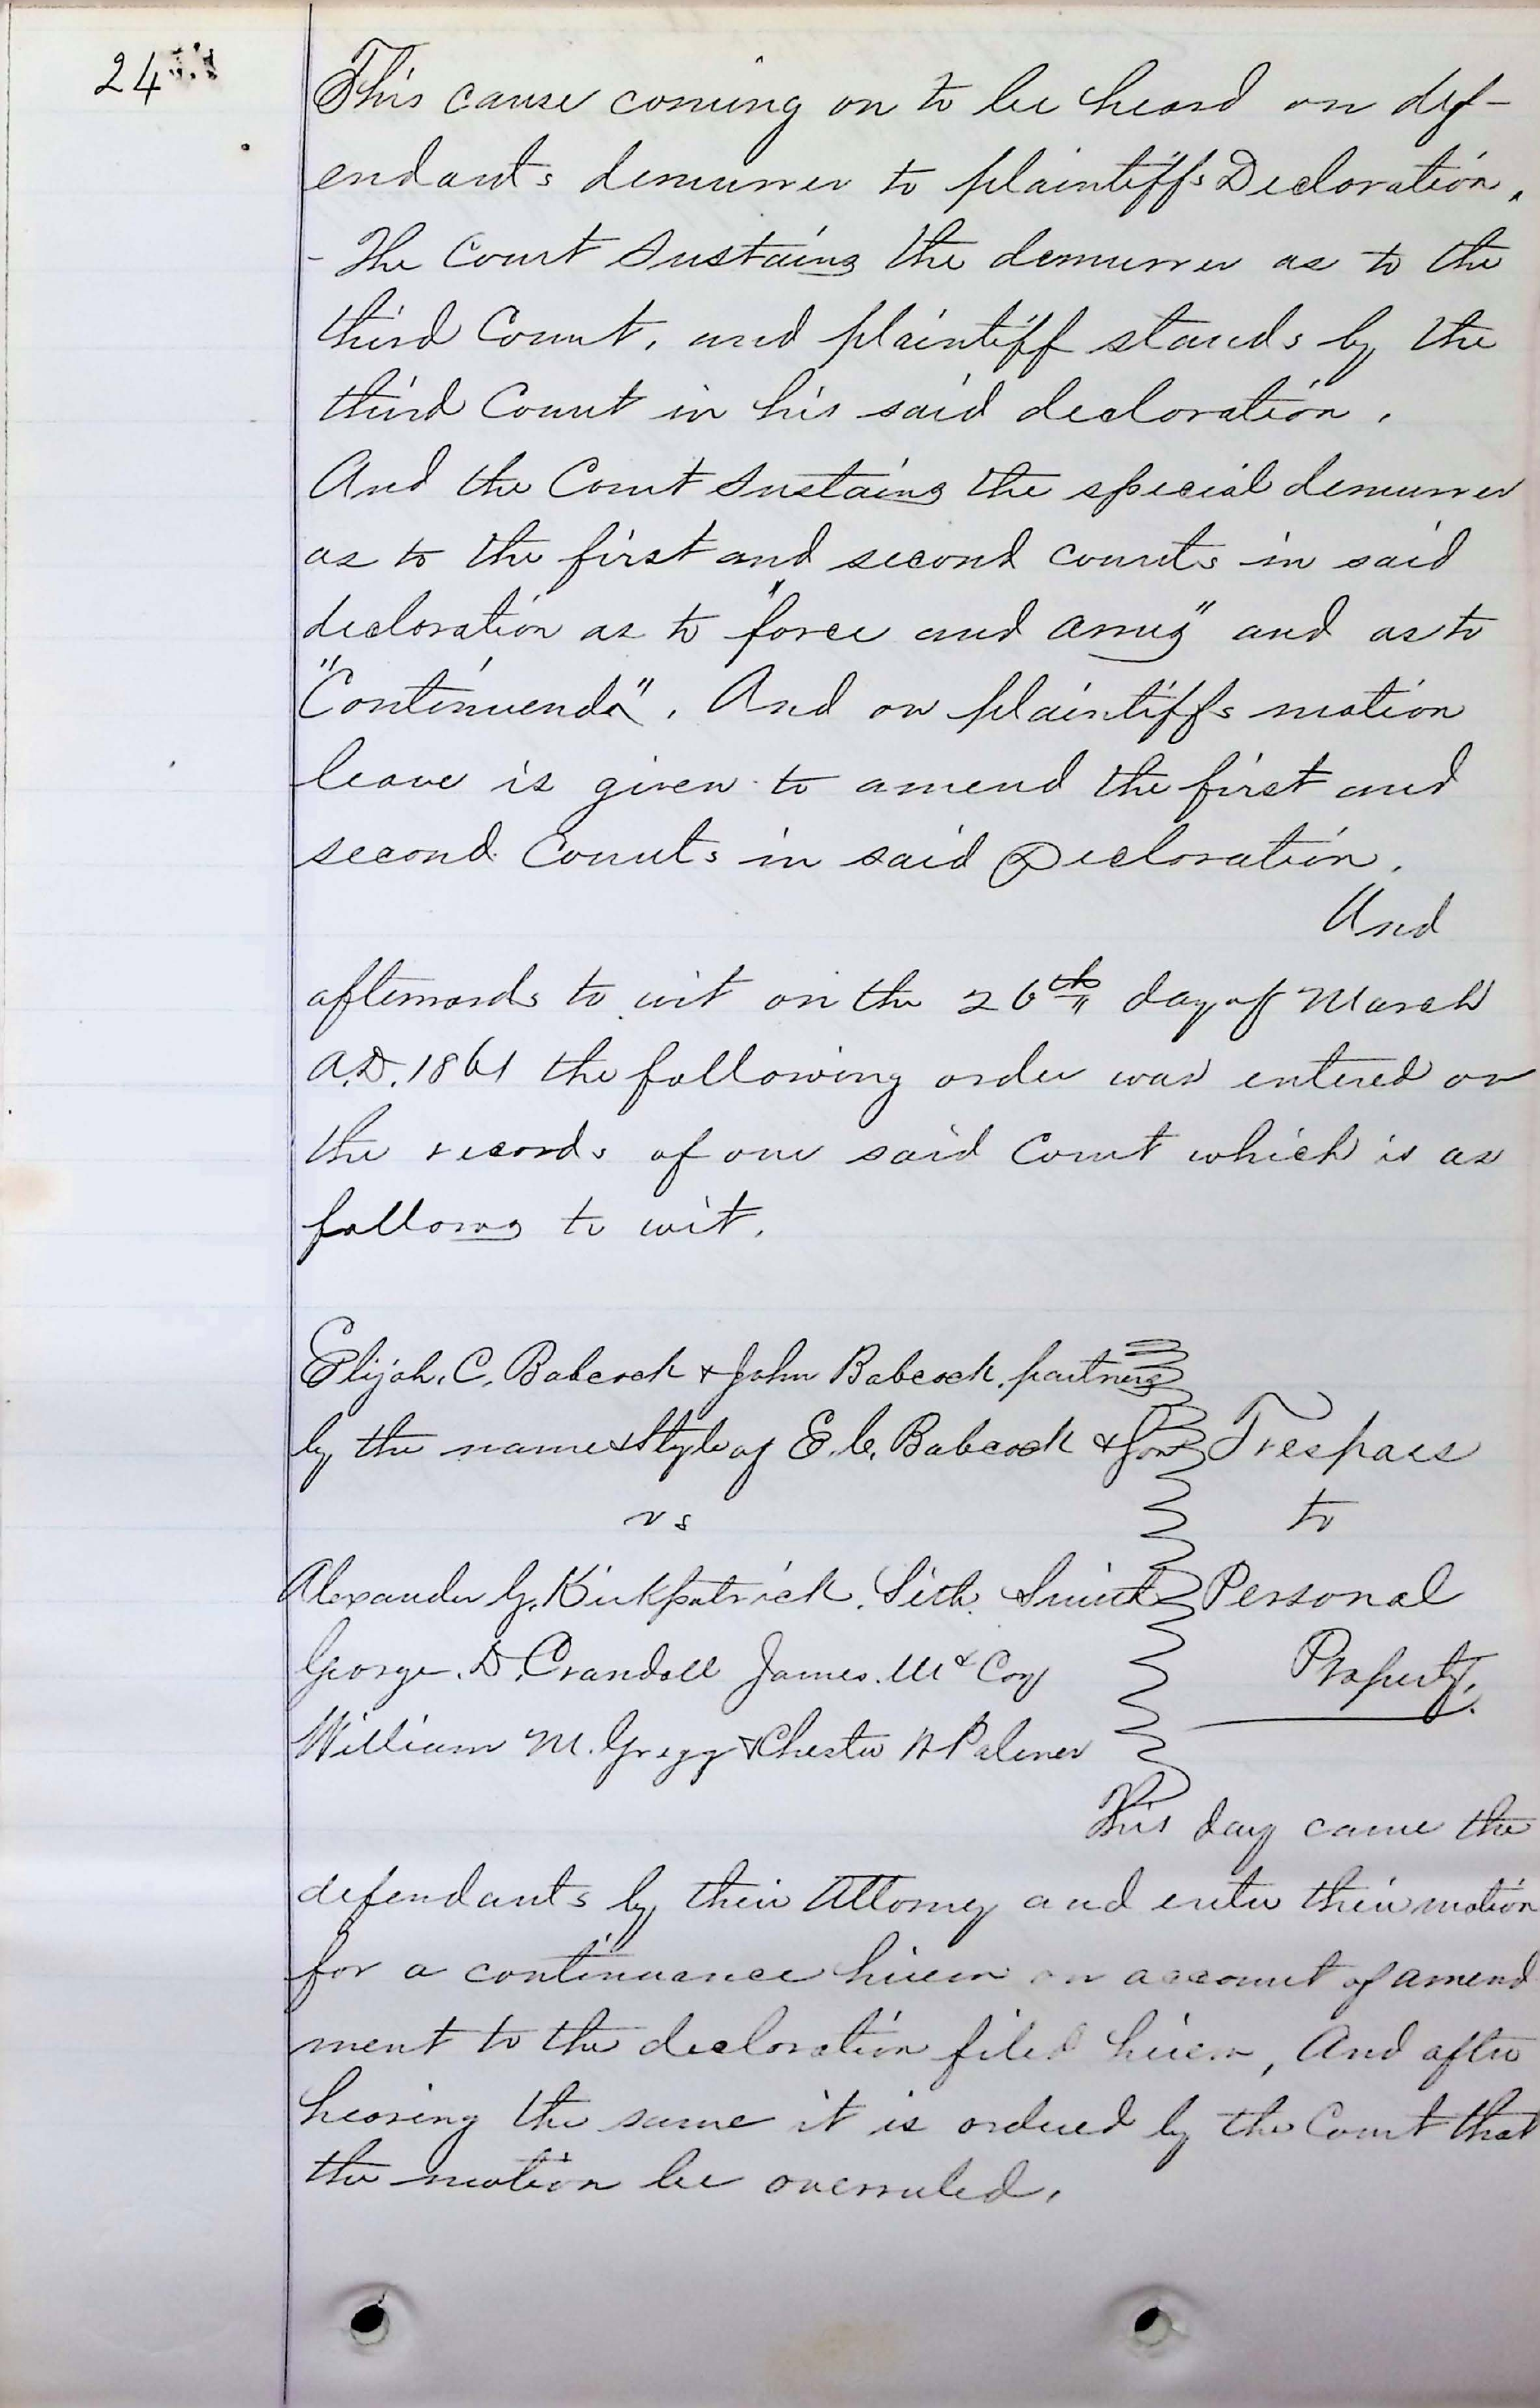 24
This cause coming on to be heard on def-
endants demurrer to plaintiffs Declaration.
- The Court Sustains the demurrer as to the
third Count, and plaintiff stands by the
third Count in his said declaration.
And the Court Sustains the special demurrer
as to the first and second counts in said
declaration as to "force and arms" and as to
"Continuendo". And on plaintiffs motion
leave is given to amend the first and
second Counts in said Declaration.
And
afterwards to wit on the 26th day of March
A.D. 1861 the following order was entered on
the records of our said Court which is as
follows to wit.
Elijah. C. Babcock & John Babcock, partners
by the name & Style of E. C. Babcock & Son Trespass
vs to
Alexander G. Kirkpatrick. Seth Smith Personal
George. D. Crandall James. McCoy Property.
William M. Gregg & Chester Palmer
This day came the
defendants by their Attorney and enter their motion
for a continuance herein on account of amend
ment to the declaration filed herein, And after
hearing the same it is ordered by the Court that
the motion be overruled.